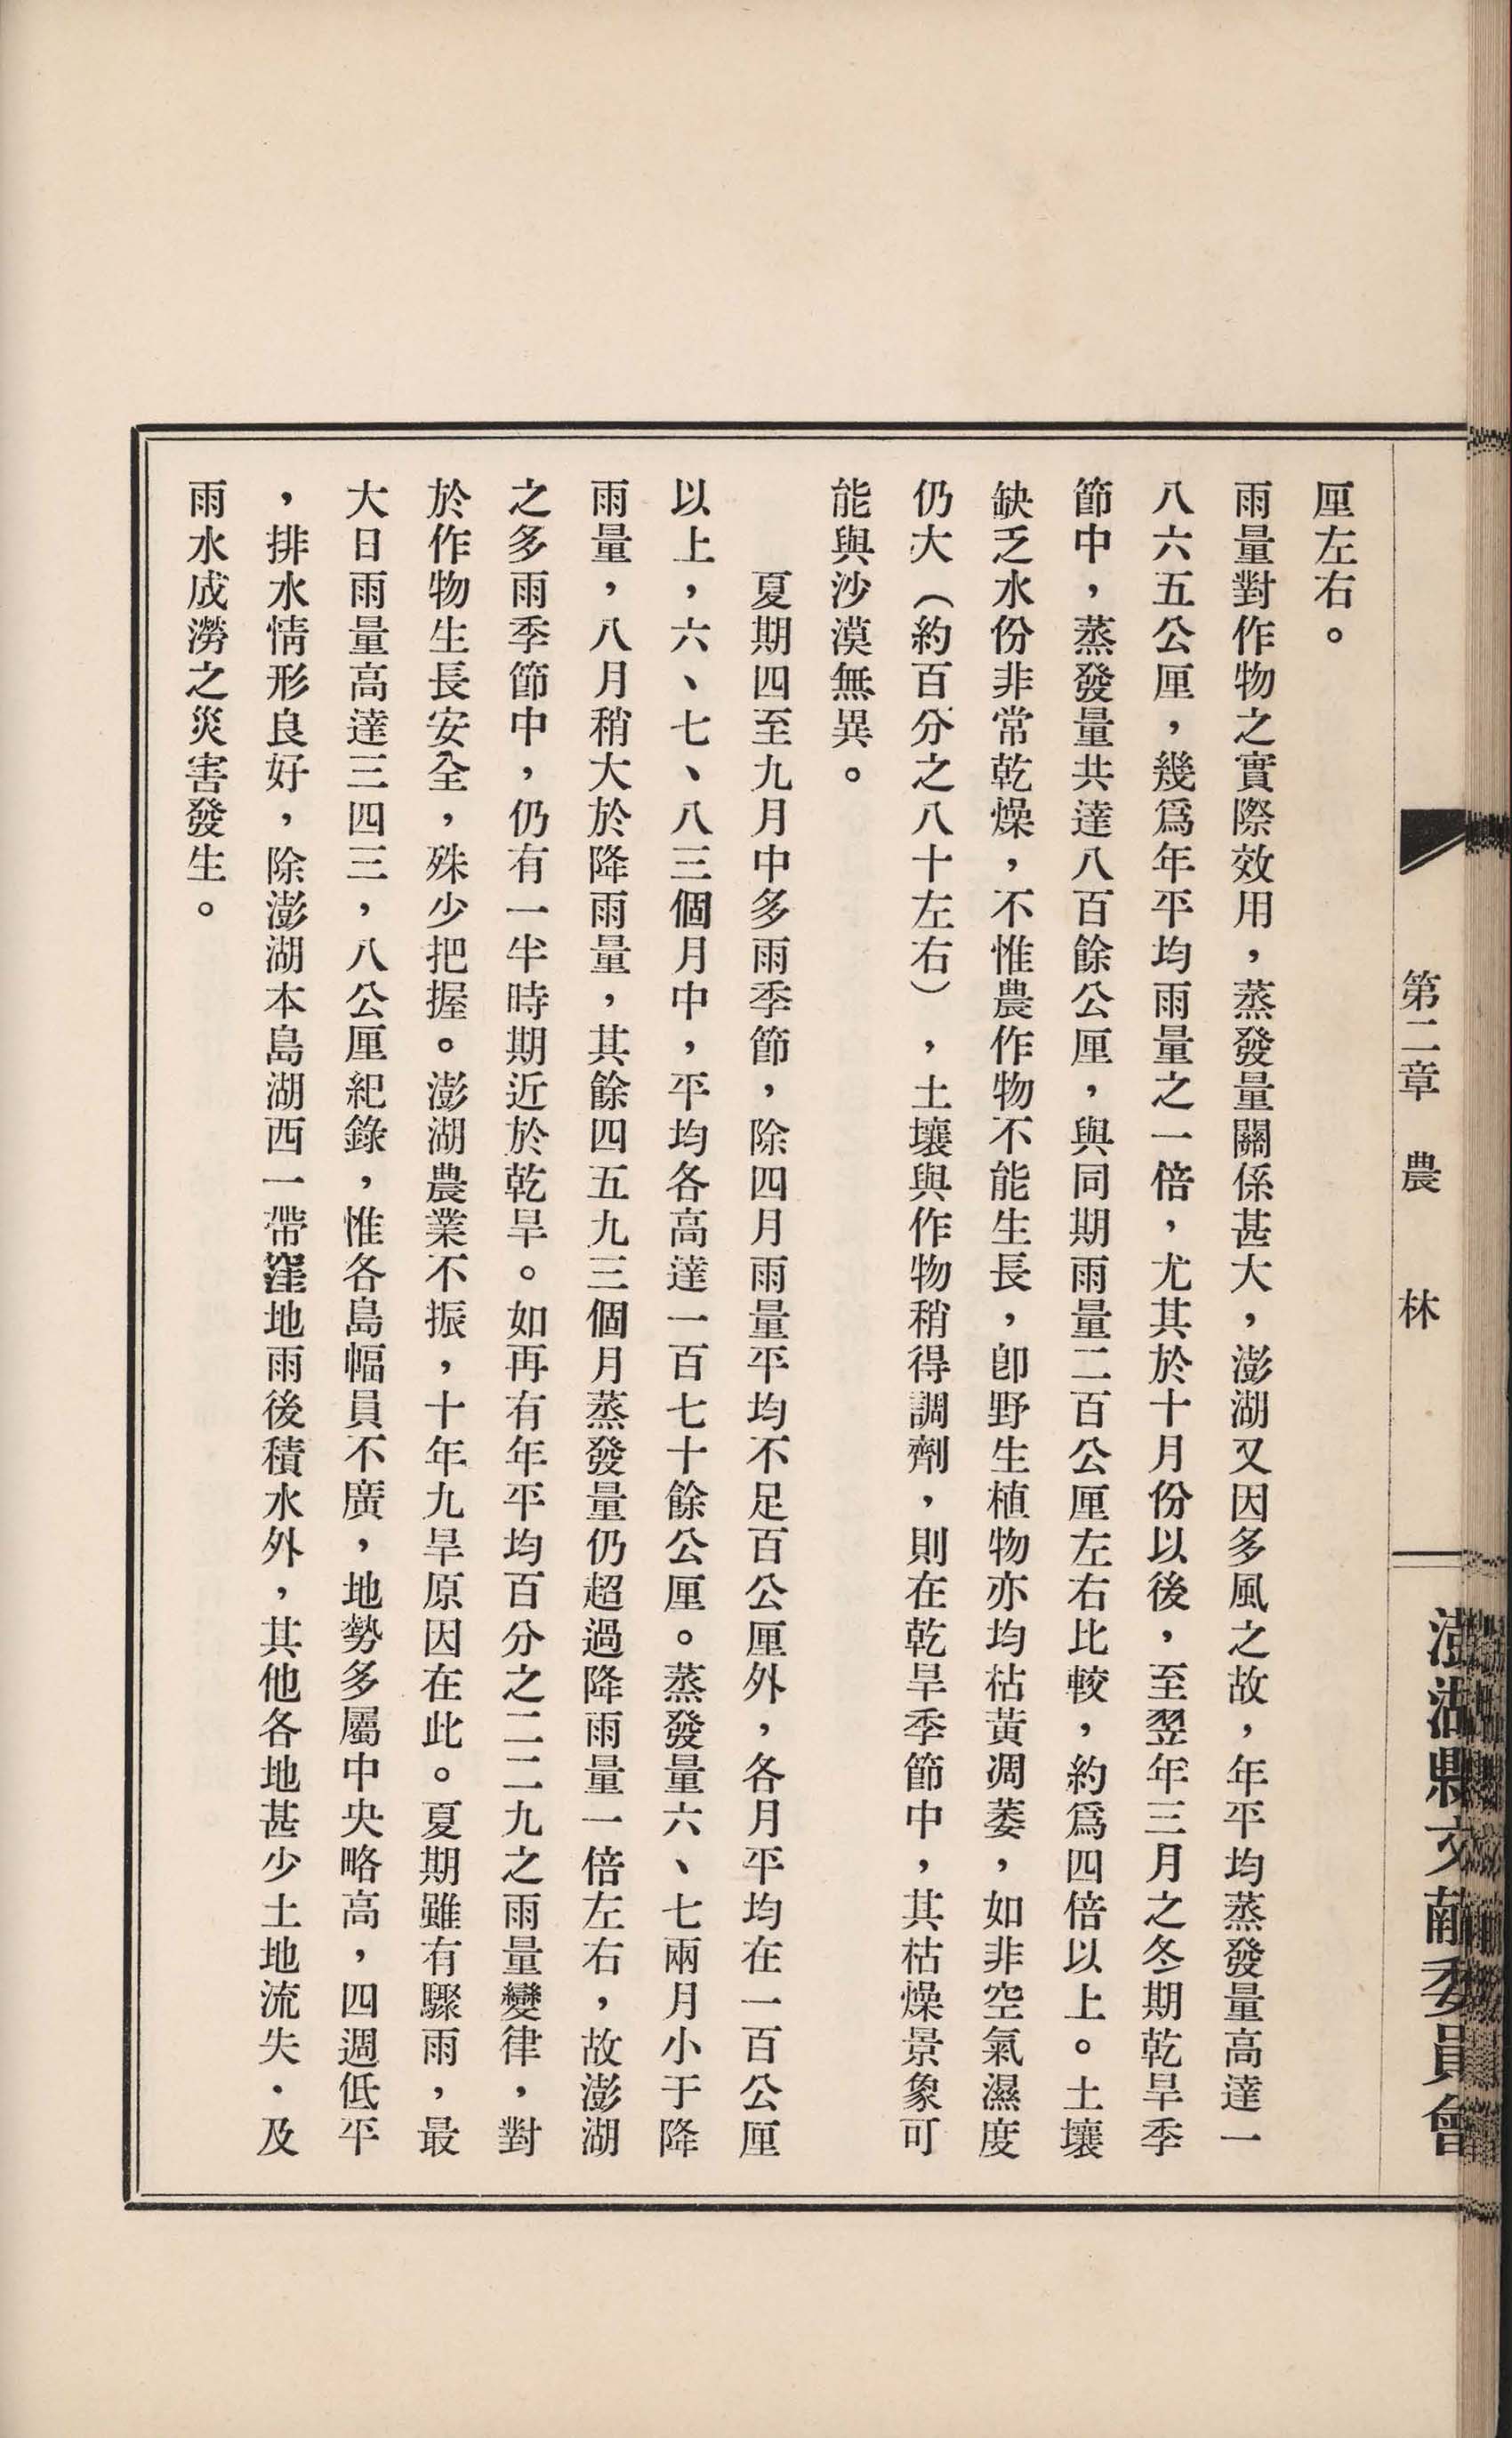 第二章　農　　林
澎湖縣文獻委員會
厘左右。
雨量對作物之實際效用，蒸發量關係甚大，澎湖又因多風之故，年平均蒸發量高達一
八六五公厘，幾爲年平均雨量之一倍，尤其於十月份以後，至翌年三月之冬期乾旱季
節中，蒸發量共達八百餘公厘，與同期雨量二百公厘左右比較，約爲四倍以上。土壤
缺乏水份非常乾燥，不惟農作物不能生長，卽野生植物亦均枯黃凋萎，如非空氣濕度
仍大（約百分之八十左右），土壤與作物稍得調劑，則在乾旱季節中，其枯燥景象可
能與沙漠無異。
　　夏期四至九月中多雨季節，除四月雨量平均不足百公厘外，各月平均在一百公厘
以上，六、七、八三個月中，平均各高達一百七十餘公厘。蒸發量六、七兩月小于降
雨量，八月稍大於降雨量，其餘四五九三個月蒸發量仍超過降雨量一倍左右，故澎湖
之多雨季節中，仍有一半時期近於乾旱。如再有年平均百分之二二九之雨量變律，對
於作物生長安全，殊少把握。澎湖農業不振，十年九旱原因在此。夏期雖有驟雨，最
大日雨量高達三四三，八公厘紀錄，惟各島幅員不廣，地勢多屬中央略高，四週低平
，排水情形良好，除澎湖本島湖西一帶窪地雨後積水外，其他各地甚少土地流失・及
雨水成澇之災害發生。